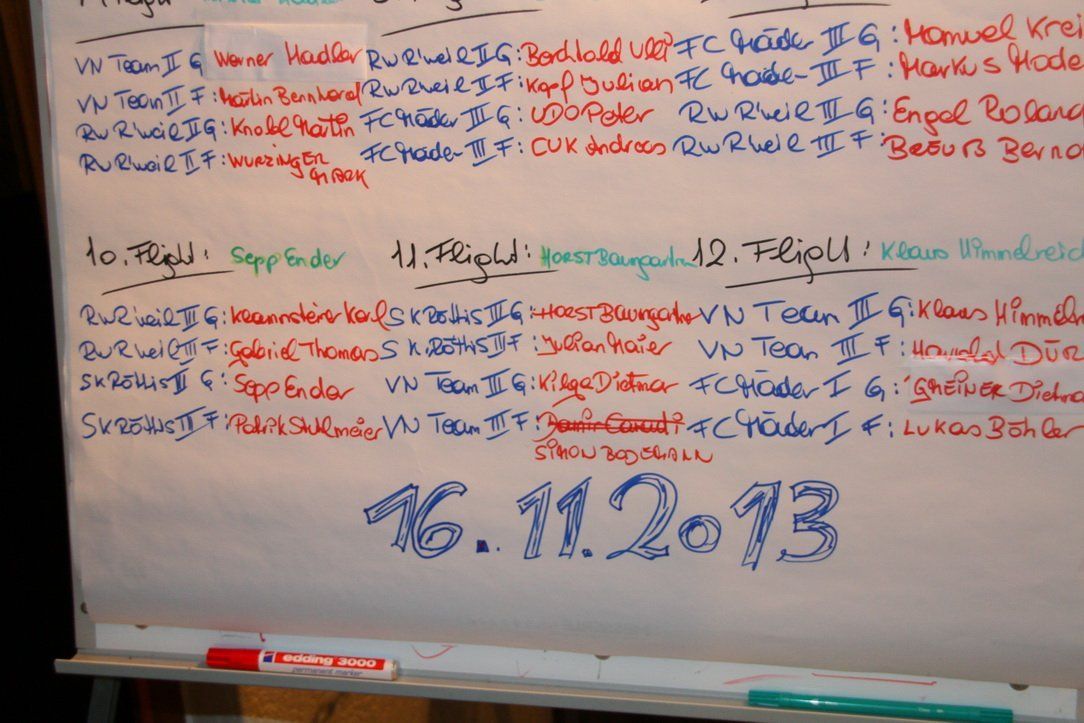 VN Team II G Werner Hadler
VN Team II F: Martin Bernhard
RW R'weil II G: Knobl Martin
RW R'weil II F: WURZINGER
MARK
RW R'weil II G: Berchtold Ulli
RW R'weil II F: Kopf Julian
FC Mäder III G: UDO Peter
FC Mäder III F: CUK Andreas
FC Mäder III G: Manuel Krei
FC Mäder III F: Markus Mode
RW R'weil III G: Engel Roland
RW R'weil III F: BREUß Berna
10. Flight: Sepp Ender
RW R'weil III G: Karl
RW R'weil III F: Gabriel Thomas
SK Röthis II G: Sepp Ender
SK Röthis II F: Patrik Stuhlmeier
11. Flight: HORST Baumgartner
SK Röthis III G: HORST Baumgartner
SK Röthis III F: Julian Maier
VN Team III G: Kilga Dietmar
VN Team III F:
SIMON BODEMANN
12. Flight: Klaus Himmelreic
VN Team III G: Klaus Himmelr
VN Team III F: Harald DÜR
FC Mäder I G: GREINER Dietma
FC Mäder I F: LUKAS Böhler
16. 11. 2013
edding 3000
permanent marker